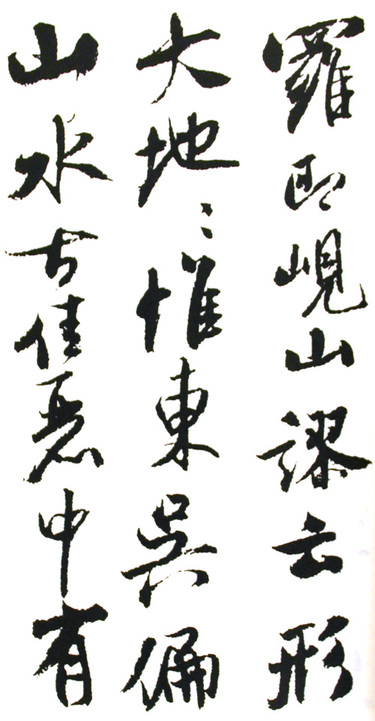 羅即峴山謬云形
大地〻惟東吳偏
山水古佳麗中有